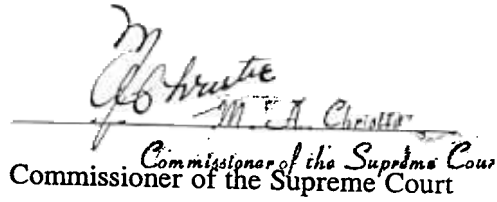 M A Christie
M. A. Christie
Commissioner of the Supreme Cour
Commissioner of the Supreme Court